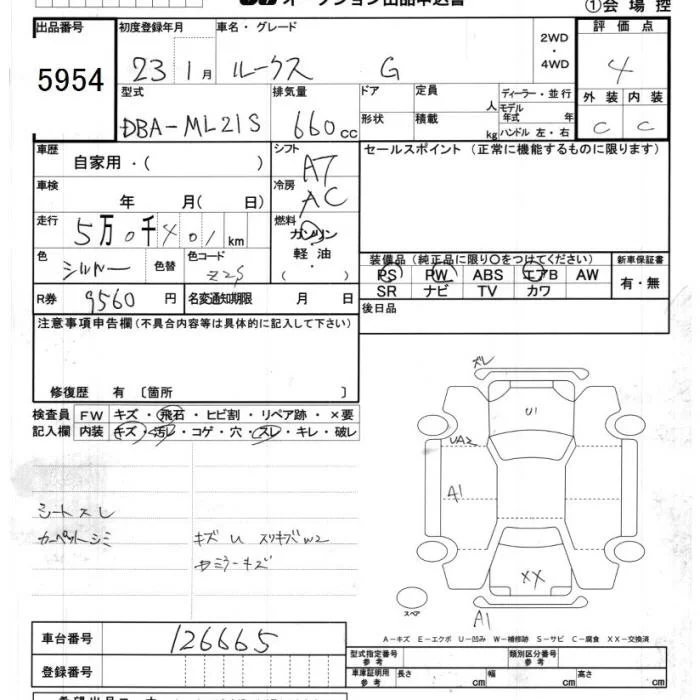 オークション出品申込書
①会場控
出品番号 初度登録年月 車名・グレード 2WD・4WD 評価点
5954 23 1月 ルークス G 4
型式 排気量 ドア 定員 人 ディーラー・並行 外装 内装
DBA-ML21S 660cc 形状 積載 kg モデル年式 年 ハンドル 左・右 C C
車歴 自家用・( ) シフト AT セールスポイント(正常に機能するものに限ります)
車検 年 月( 日) 冷房 AC
走行 5万0千401km 燃料 ガソリン・軽油・( )
色 シルバー 色替 色コード Z2S 装備品(純正品に限り○をつけてください) 新車保証書
PS PW ABS エアB AW 有・無
R券 9560円 名変通知期限 月 日 SR ナビ TV カワ
注意事項申告欄(不具合内容等は具体的に記入して下さい) 後日品
修復歴 有 〔箇所 〕
検査員 FW キズ・飛石・ヒビ割・リペア跡・×要
記入欄 内装 キズ・汚レ・コゲ・穴・スレ・キレ・破レ
ズレ
U1
UA2
A1
シートスレ
カーペットシミ キズ U スリキズW2
ミラーキズ
XX
スペア
A1
A-キズ E-エクボ U-凹み W-補修跡 S-サビ C-腐食 XX-交換済
車台番号 126665
型式指定番号 参考 類別区分番号 参考
登録番号 車庫証明用 参考 長さ cm 幅 cm 高さ cm